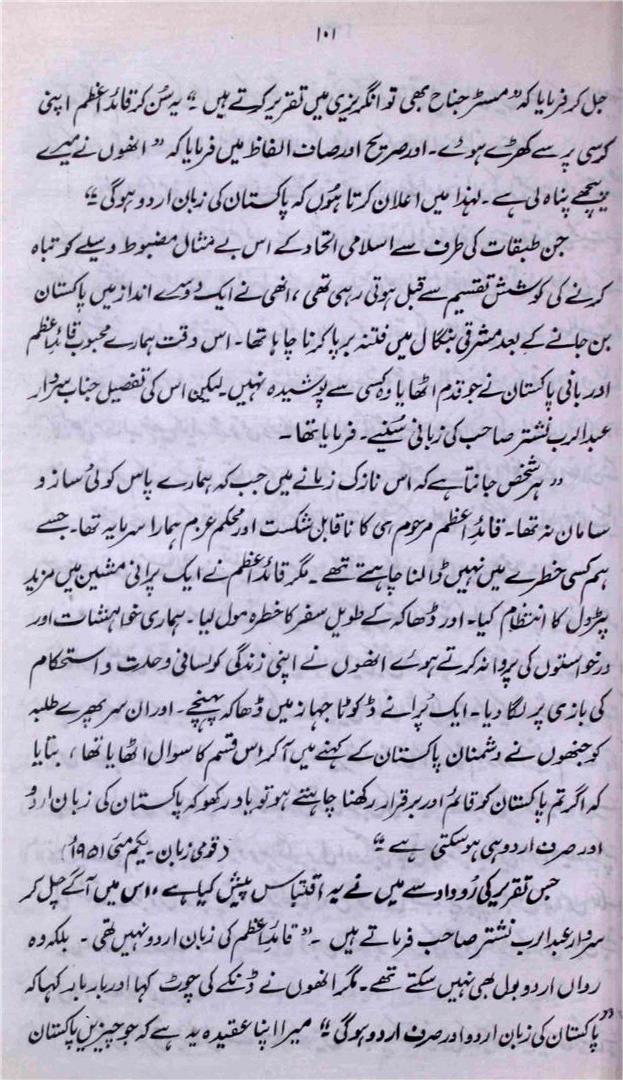 ۱۰۱
جل کر فرمایا کہ "مسٹر جناح بھی تو انگریزی میں تقریر کرتے ہیں۔" یہ سُن کر قائدِ اعظم اپنی
کرسی پر سے کھڑے ہوئے۔ اور صریح اور صاف الفاظ میں فرمایا کہ "انھوں نے میرے
پیچھے پناہ لی ہے۔ لہٰذا میں اعلان کرتا ہُوں کہ پاکستان کی زبان اردو ہوگی"
جن طبقات کی طرف سے اسلامی اتحاد کے اس بے مثال مضبوط وسیلے کو تباہ
کرنے کی کوشش تقسیم سے قبل ہوتی رہی تھی، انھی نے ایک دوسرے انداز میں پاکستان
بن جانے کے بعد مشرقی بنگال میں فتنہ برپا کرنا چاہا تھا۔ اس وقت ہمارے محبوب قائدِ اعظم
اور بانی پاکستان نے جو قدم اٹھایا وہ کسی سے پوشیدہ نہیں۔ لیکن اس کی تفصیل جناب سردار
عبدالرب نشتر صاحب کی زبانی سُنیے۔ فرمایا تھا۔
"ہر شخص جانتا ہے کہ اس نازک زمانے میں جب کہ ہمارے پاس کوئی ساز و
سامان نہ تھا۔ قائدِ اعظم مرحوم ہی کا ناقابلِ شکست اور محکم عزم ہمارا سرمایہ تھا۔ جسے
ہم کسی خطرے میں نہیں ڈالنا چاہتے تھے۔ مگر قائدِ اعظم نے ایک پرانی مشین میں مزید
پٹرول کا انتظام کیا۔ اور ڈھاکہ کے طویل سفر کا خطرہ مول لیا۔ ہماری خواہشات اور
درخواستوں کی پروا نہ کرتے ہوئے انھوں نے اپنی زندگی کو لسانی وحدت و استحکام
کی بازی پر لگا دیا۔ ایک پُرانے ڈکوٹا جہاز میں ڈھاکہ پہنچے۔ اور ان سر پھرے طلبہ
کو جنھوں نے دشمنان پاکستان کے کہنے میں آکر اس قسم کا سوال اٹھایا تھا، بتایا
کہ اگر تم پاکستان کو قائم اور برقرار رکھنا چاہتے ہو تو یاد رکھو کہ پاکستان کی زبان اردو
اور صرف اردو ہی ہو سکتی ہے" (قومی زبان۔ یکم مئی ۱۹۵۱ء)
جس تقریر کی رُوداد سے میں نے یہ اقتباس پیش کیا ہے، اس میں آگے چل کر
سردار عبدالرب نشتر صاحب فرماتے ہیں۔ "قائدِ اعظم کی زبان اردو نہیں تھی۔ بلکہ وہ
رواں اردو بول بھی نہیں سکتے تھے۔ مگر انھوں نے ڈنکے کی چوٹ کہا اور بار بار کہا کہ
"پاکستان کی زبان اردو اور صرف اردو ہوگی" میرا اپنا عقیدہ یہ ہے کہ جو چیزیں پاکستان